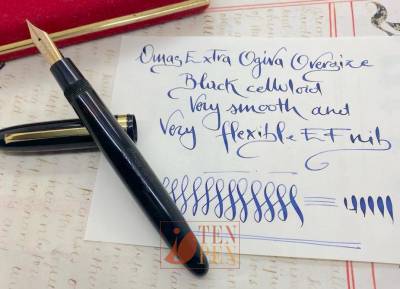 Omas Extra Ogiva Oversize
Black celluloid
Very smooth and
Very flexible EF nib
TEN
PEN